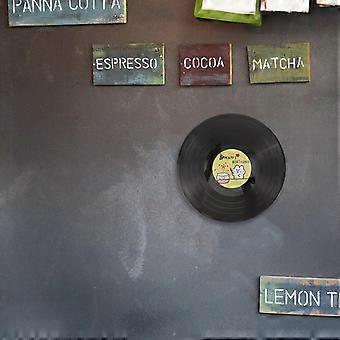 PANNA COTTA
ESPRESSO
COCOA
MATCHA
LEMON T